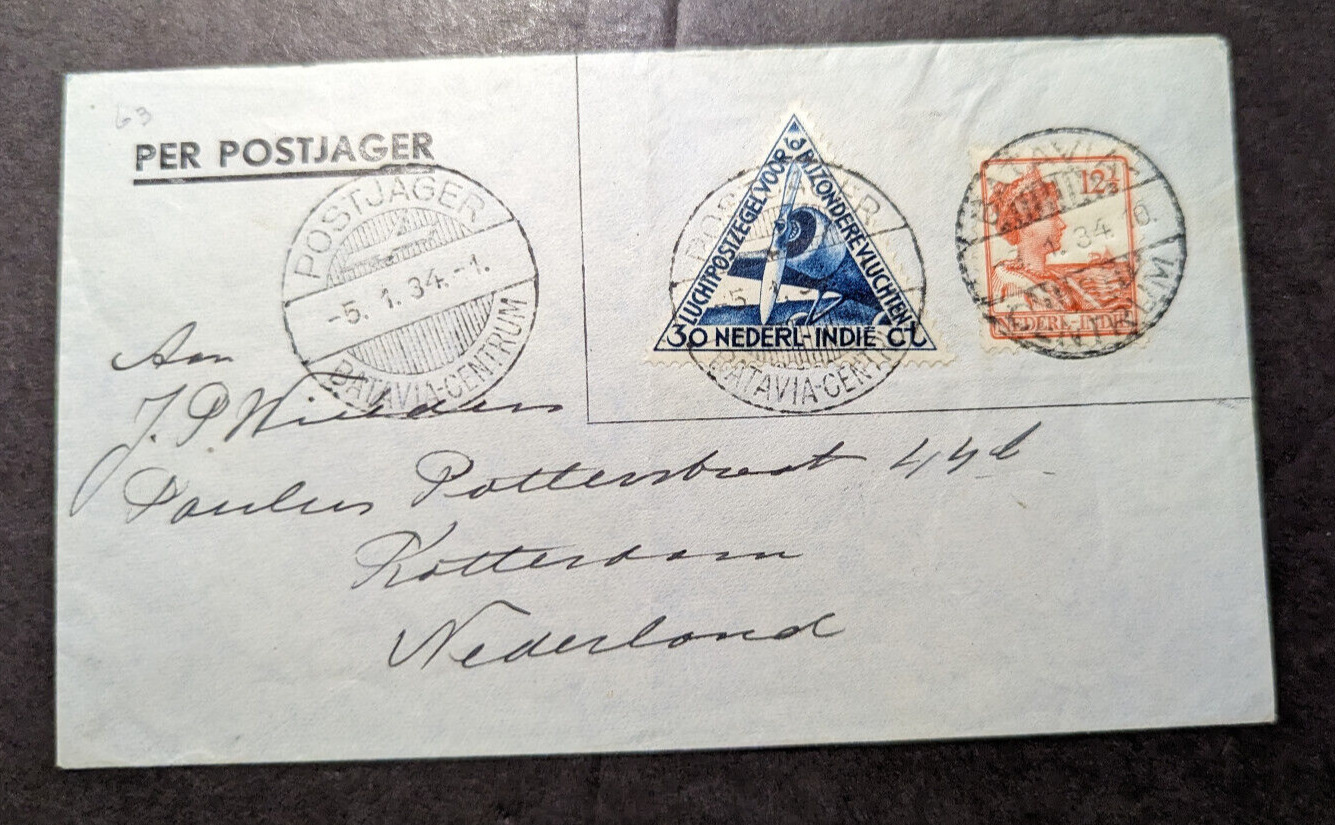 63
PER POSTJAGER
POSTJAGER
-5. 1. 34.-1.
BATAVIA-CENTRUM
LUCHTPOSTZEGEL VOOR BIJZONDERE VLUCHTEN
30 NEDERL-INDIË ct
BATAVIA-CENT
12½
1. 34
NEDERL-INDIË
Aan
J. P.
Paulus Potterstraat 44b
Rotterdam
Nederland